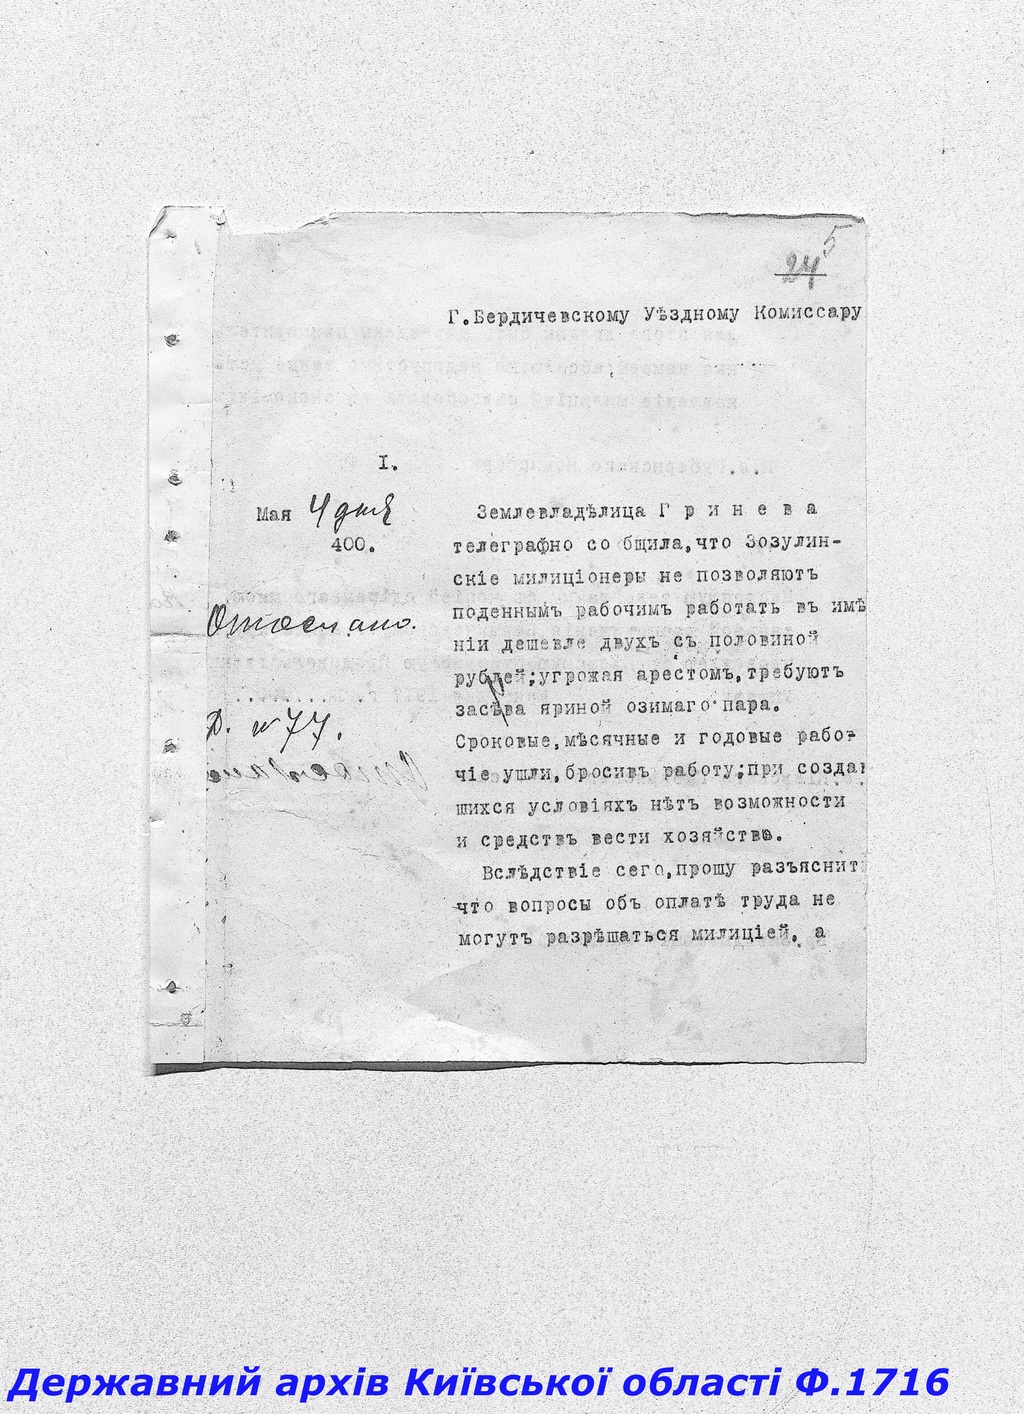 5
24
Г.Бердичевскому Уѣздному Комиссару
I.
Мая 4 дня
400.
Отослано.
Д. № 77.
Землевладѣлица Г р и н е в а
телеграфно со бщила,что Зозулин-
скіе милиціонеры не позволяютъ
поденнымъ рабочимъ работать въ имѣ
ніи дешевле двухъ съ половиной
рублей;угрожая арестомъ,требуютъ
засѣва яриной озимаго пара.
Сроковые,мѣсячные и годовые рабо-
чіе ушли,бросивъ работу;при создав
шихся условіяхъ нѣтъ возможности
и средствъ вести хозяйство.
Вслѣдствіе сего,прошу разъяснить
что вопросы объ оплатѣ труда не
могутъ разрѣшаться милиціей, а
Державний архів Київської області Ф.1716